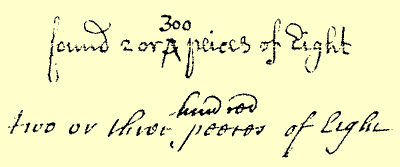 found 2 or 300 peices of Eight
two or three hundred peeces of Eight